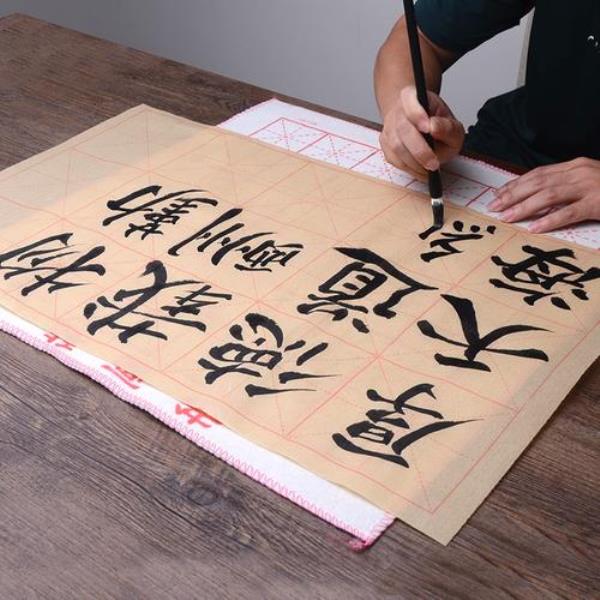 厚德载物
天道酬勤
海纟